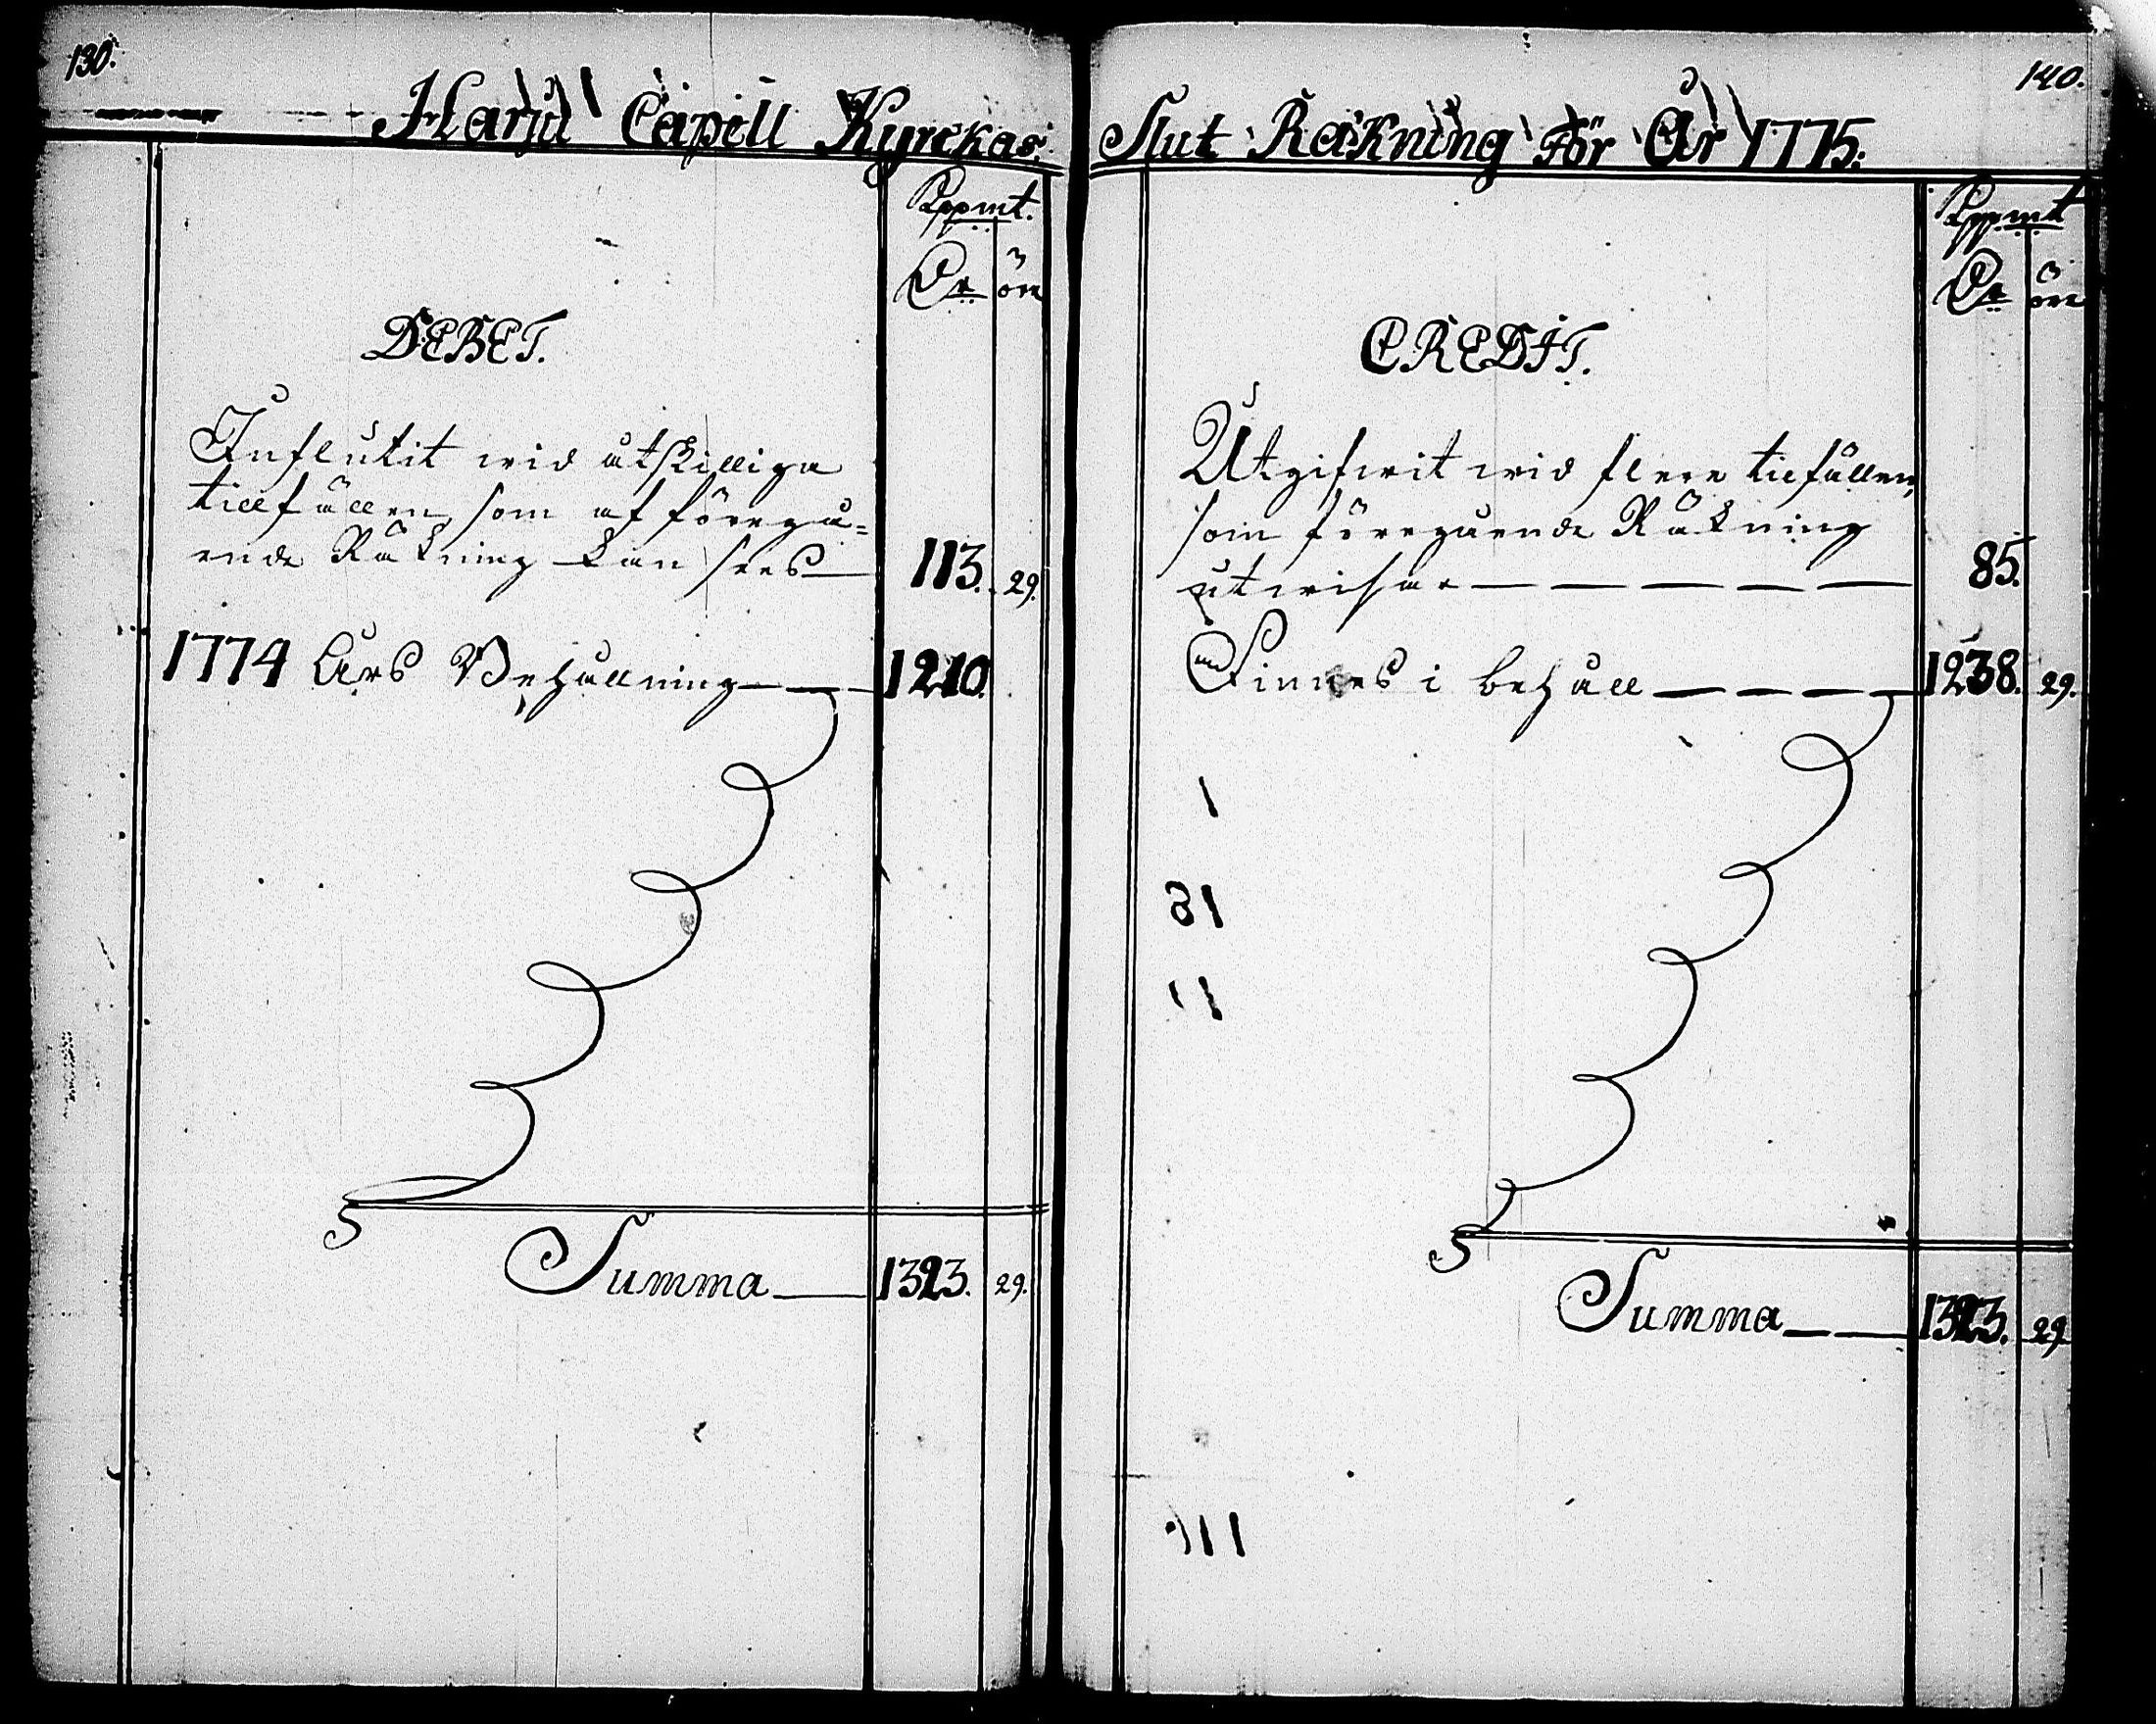 130.
Harju Capell Kyrckas
Kppmt.
Dr öre
DEBET.
Influtit wid åtskilliga
tillfällen, som af föregå=
ende Räkning kan sees 113. 29.
1774 Års Behållning 1210.
Summa 1323. 29.
140.
Slut Räkning För År 1775.
Kppmt
Dr öre
CREDIT.
Utgifwit wid flere tillfällen,
som föregående Räkning
utwisar 85.
Finnes i behåll 1238. 29.
Summa 1323. 29